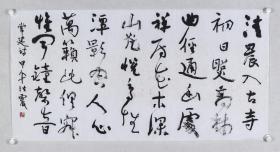 清晨入古寺
初日照高林
曲径通幽處
禅房花木深
山光悦鸟性
潭影空人心
萬籁此俱寂
惟闻鐘磬音
常建诗甲午